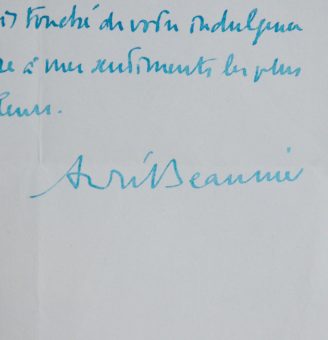 is touché de votre indulgence
re à mes sentiments les plus
leurs.
André Beaunier